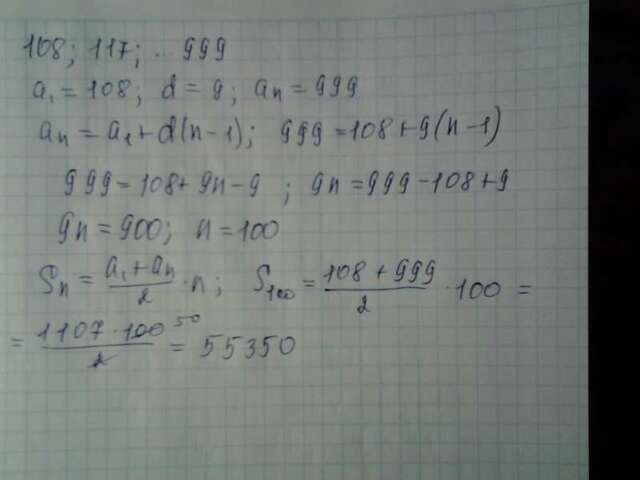 108; 117; ... 999
a₁ = 108; d = 9; aₙ = 999
aₙ = a₁ + d(n-1); 999 = 108 + 9(n-1)
999 = 108 + 9n - 9; 9n = 999 - 108 + 9
9n = 900; n = 100
Sₙ = (a₁ + aₙ)/2 · n; S₁₀₀ = (108 + 999)/2 · 100 =
= (1107 · 100 50)/2 = 55350